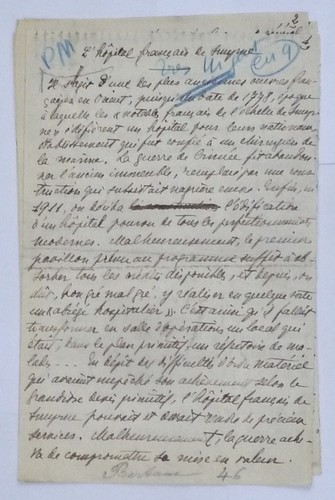 PM
2
à
L'hôpital français de Smyrne
Il s'agit d'une des plus anciennes œuvres fran-
çaises en Orient, puisqu'on date de 1778, époque
à laquelle les "notables" français de l'échelle de Smyr-
ne y édifièrent un hôpital pour leurs nationaux,
établissement qui fut confié à un chirurgien de
la marine. La guerre de Crimée fit abandon-
ner l'ancien immeuble, remplacé par une cons-
truction qui subsistait naguère encore. Enfin, en
1911, on décida la construction l'édification
d'un hôpital pourvu de tous les perfectionnements
modernes. Malheureusement, le premier
pavillon prévu au programme suffit à ab-
sorber tous les crédits disponibles, et depuis, on
dût, bon gré mal gré, y réaliser en quelque sorte
un "abrégé hospitalier". C'est ainsi qu'il fallut
transformer en salle d'opérations un local qui
était, dans le plan primitif, un réfectoire de ma-
lades.... En dépit des difficultés d'ordre matériel
qui avaient empêché son achèvement selon le
grandiose devis primitif, l'hôpital français de
Smyrne pouvait et devait rendre de précieux
services. Malheureusement, la guerre ache-
va de compromettre sa mise en valeur.
46